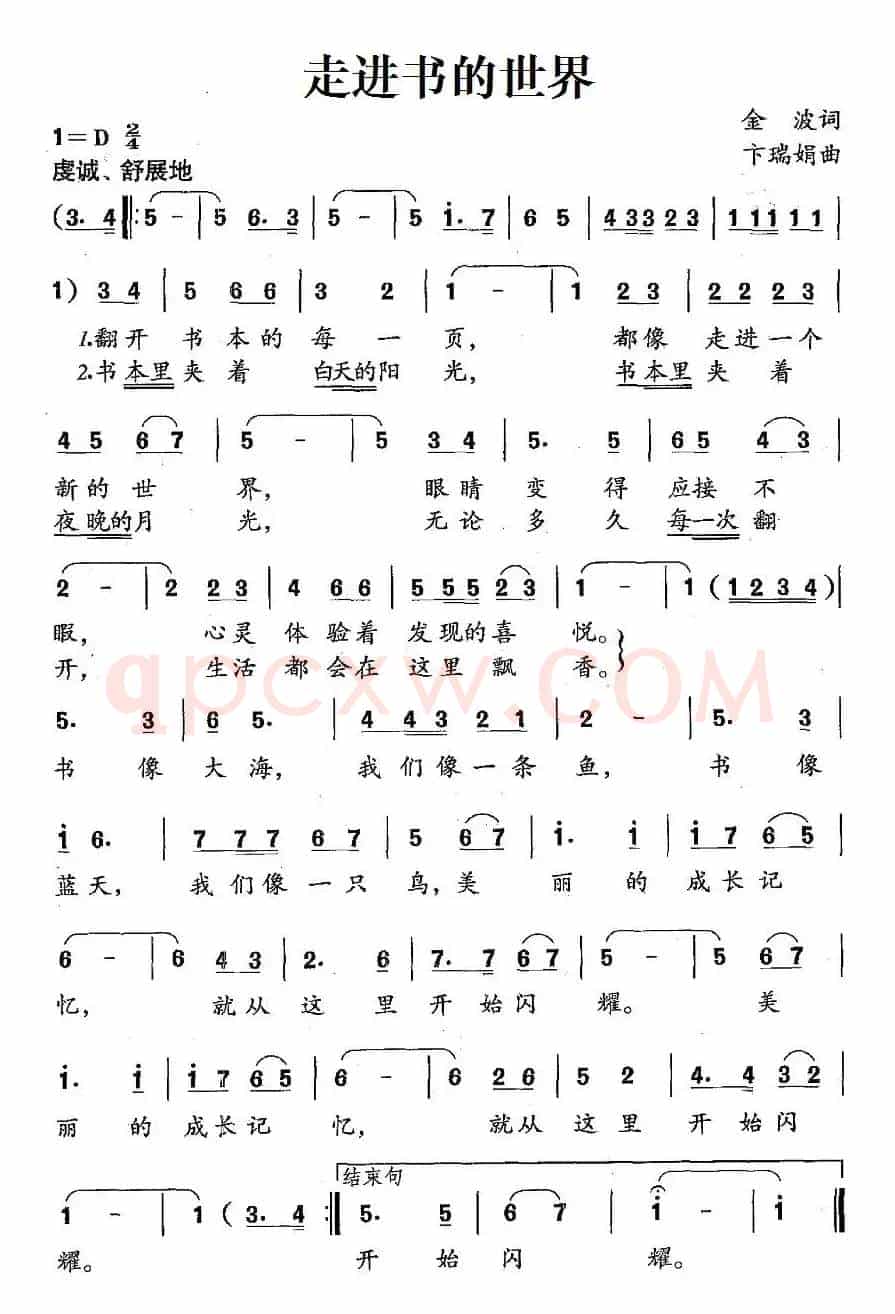 走进书的世界
1=D 2/4
金 波词
虔诚、舒展地
卞瑞娟曲
(3. 4 ‖: 5 - | 5 6. 3 | 5 - | 5 i. 7 | 6 5 | 4 3 3 2 3 | 1 1 1 1 1 |
1) 3 4 | 5 6 6 | 3 2 | 1 - | 1 2 3 | 2 2 2 3 |
1.翻开 书本的 每 一 页, 都像 走进一个
2.书本里 夹 着 白天的阳 光, 书本里 夹 着
4 5 6 7 | 5 - | 5 3 4 | 5. 5 | 6 5 4 3 |
新的 世 界, 眼睛 变 得 应接 不
夜晚的月 光, 无论 多 久 每一次 翻
2 - | 2 2 3 | 4 6 6 | 5 5 5 2 3 | 1 - | 1 (1 2 3 4) |
暇, 心灵 体 验着 发现的喜 悦。
开, 生活 都 会在 这里 飘 香。
qpcxw.COM
5. 3 | 6 5. | 4 4 3 2 1 | 2 - | 5. 3 |
书 像 大 海, 我们像一条 鱼, 书 像
i 6. | 7 7 7 6 7 | 5 6 7 | i. i | i 7 6 5 |
蓝 天, 我们像 一只 鸟,美 丽 的 成长记
6 - | 6 4 3 | 2. 6 | 7. 7 6 7 | 5 - | 5 6 7 |
忆, 就从 这 里 开 始闪 耀。 美
i. i | i 7 6 5 | 6 - | 6 2 6 | 5 2 | 4. 4 3 2 |
丽 的 成长记 忆, 就从 这 里 开 始闪
结束句
1 - | 1 (3. 4 :‖ 5. 5 | 6 7 | i - | i ‖
耀。 开 始 闪 耀。